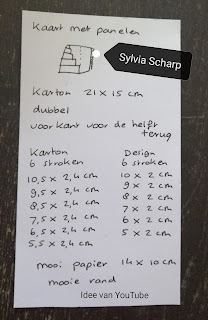 Kaart met panelen
Sylvia Scharp
Karton 21 x 15 cm
dubbel
voorkant voor de helft
terug
Karton
6 stroken
10,5 x 2,4 cm
9,5 x 2,4 cm
8,5 x 2,4 cm
7,5 x 2,4 cm
6,5 x 2,4 cm
5,5 x 2,4 cm
Design
6 stroken
10 x 2 cm
9 x 2 cm
8 x 2 cm
7 x 2 cm
6 x 2 cm
5 x 2 cm
mooi papier 14 x 10 cm
mooie rand
Idee van YouTube